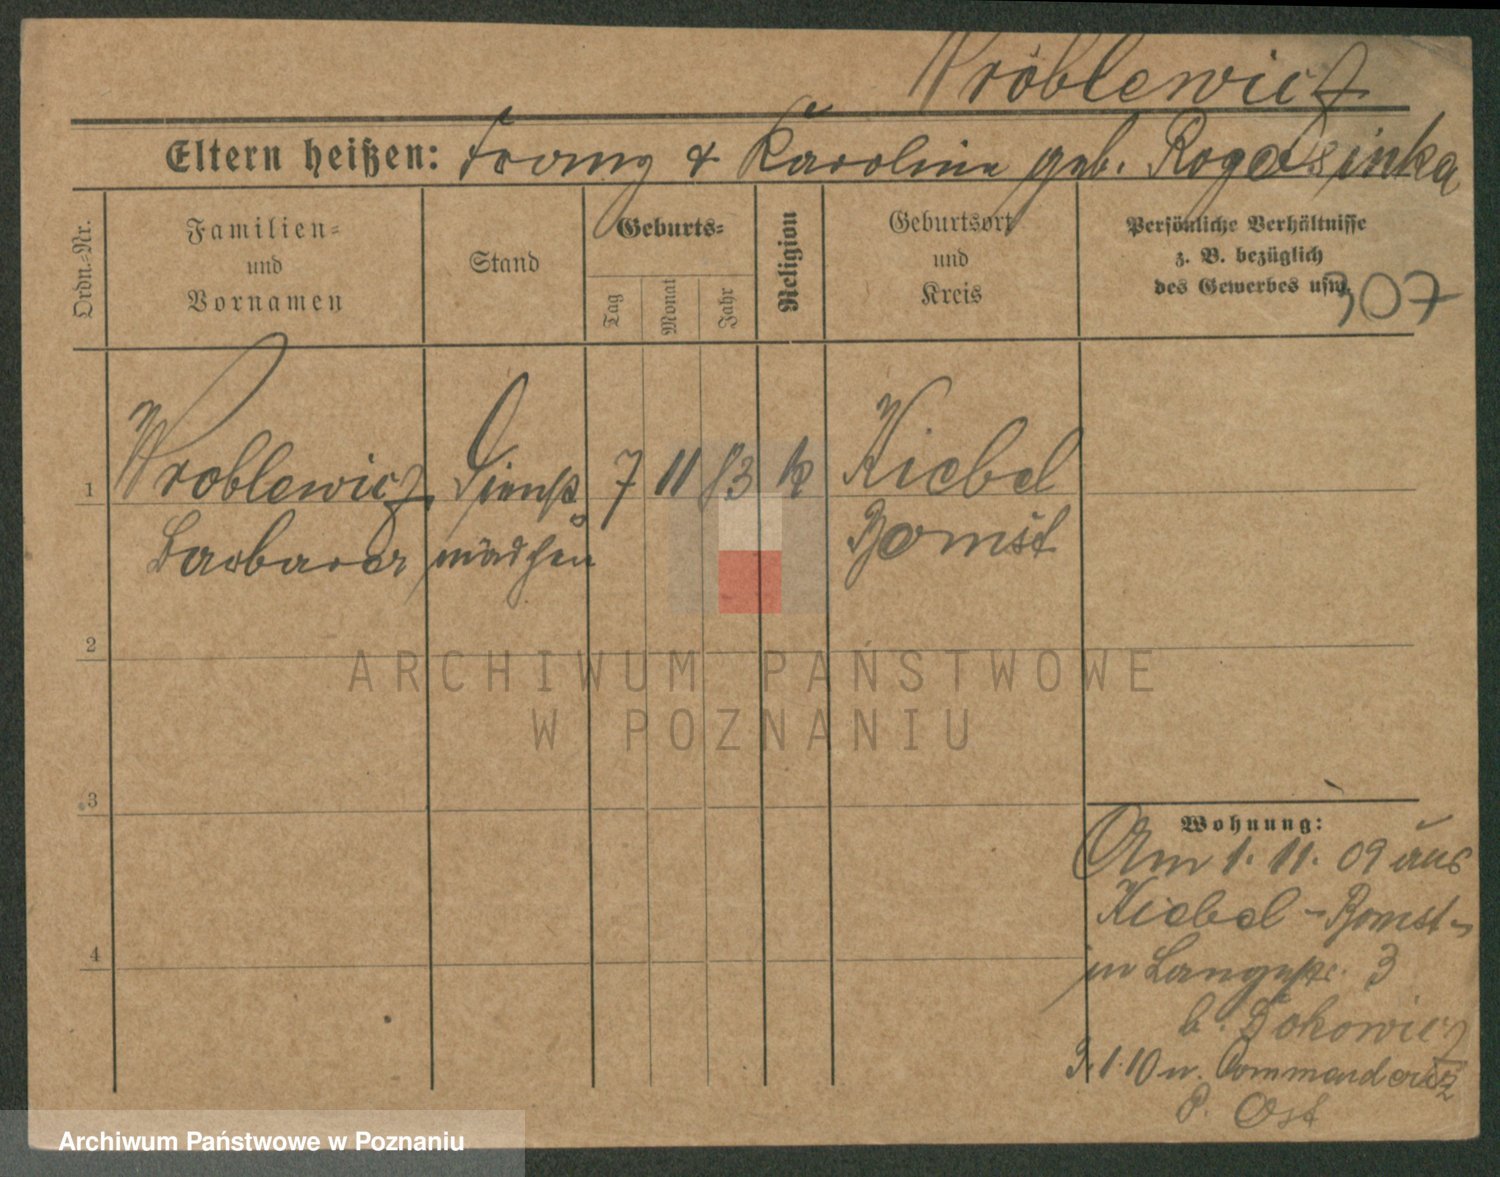 Wröblewicz
Eltern heißen: Franz & Karoline geb. Rogadsinka
Ordn.-Nr.
Familien-
und
Vornamen
Stand
Geburts-
Tag
Monat
Jahr
Religion
Geburtsort
und
Kreis
Persönliche Verhältnisse
z. B. bezüglich
des Gewerbes usw.
307
1
Wroblewicz
Barbara
Dienst
mädchen
7 11 83 k
Kiebel
Bomst
2
3
4
Wohnung:
Am 1. 11. 09 aus
Kiebel - Bomst -
in Langestr. 3
b.
3. 1. 10 n.
P. Ost
ARCHIWUM PAŃSTWOWE
W POZNANIU
Archiwum Państwowe w Poznaniu